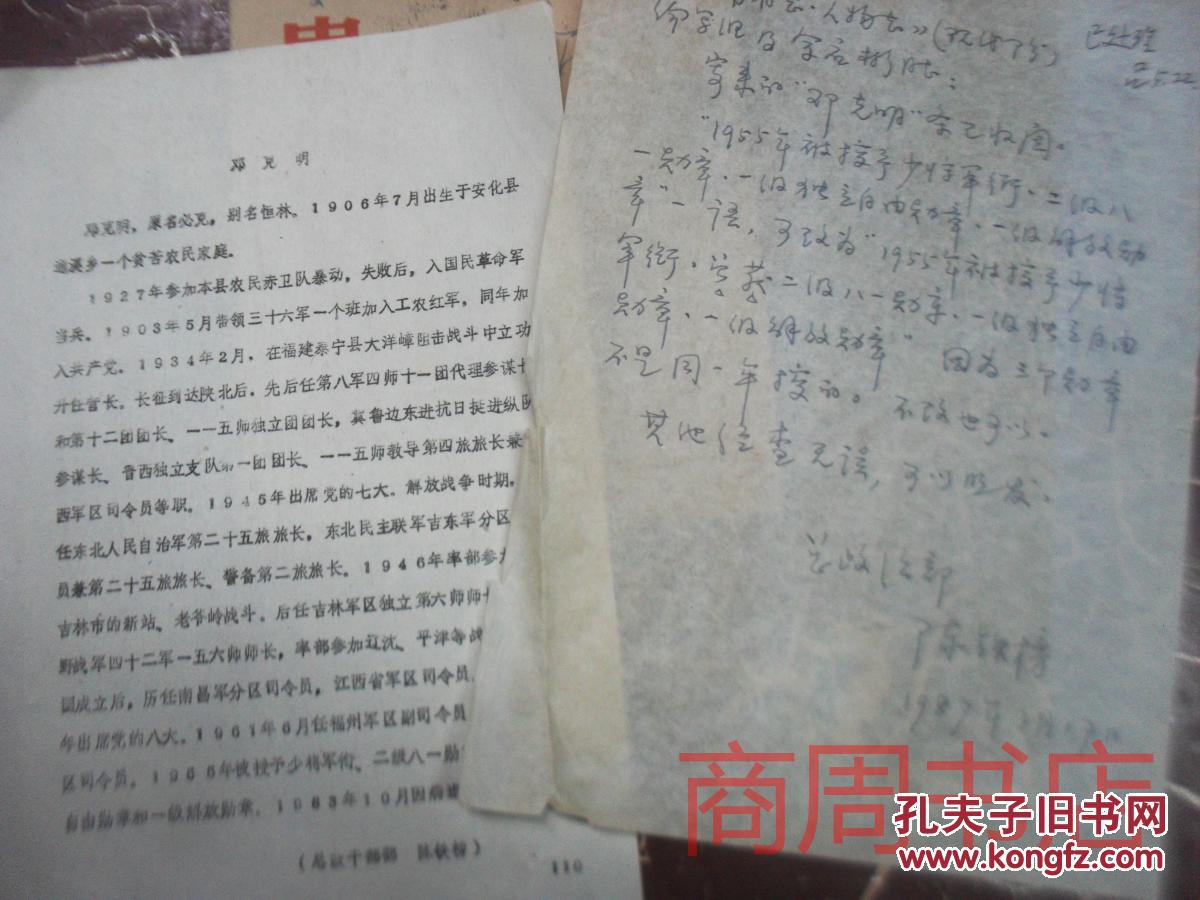 邓克明
邓克明，原名必克，别名恒林。1906年7月出生于安化县
溪乡一个贫苦农民家庭。
1927年参加本县农民赤卫队暴动，失败后，入国民革命军
当兵。1903年5月带领三十六军一个班加入工农红军，同年加
入共产党。1934年2月，在福建泰宁县大洋嶂阻击战斗中立功
升任营长。长征到达陕北后，先后任第八军四师十一团代理参谋长
和第十二团团长、一一五师独立团团长，冀鲁边东进抗日挺进纵队
参谋长、晋西独立支队第一团团长、一一五师教导第四旅旅长兼
西军区司令员等职。1945年出席党的七大。解放战争时期，
任东北人民自治军第二十五旅旅长，东北民主联军吉东军分区
员兼第二十五旅旅长、警备第二旅旅长。1946年率部参加
吉林市的新站、老爷岭战斗。后任吉林军区独立第六师师长
野战军四十二军一五六师师长，率部参加辽沈、平津等战
国成立后，历任南昌军分区司令员，江西省军区司令员
年出席党的八大。1961年6月任福州军区副司令员
区司令员，1955年被授予少将军衔、二级八一勋
自由勋章和一级解放勋章。1983年10月因病逝
（总政干部部 陈钦）
110
人物志》（现代部分）
已处理
5.22
寄来的“邓克明”条已收阅。
“1955年被授予少将军衔、二级八
一勋章、一级独立自由勋章、一级解放勋
章”一语，可改为“1955年被授予少将
军衔，曾获二级八一勋章、一级独立自由
勋章、一级解放勋章”因为三个勋章
不是同一年授的。不改也可以。
其他经查无误，可以照发。
总政治部
陈钦
1987年
商周书店
孔夫子旧书网
www.kongfz.com